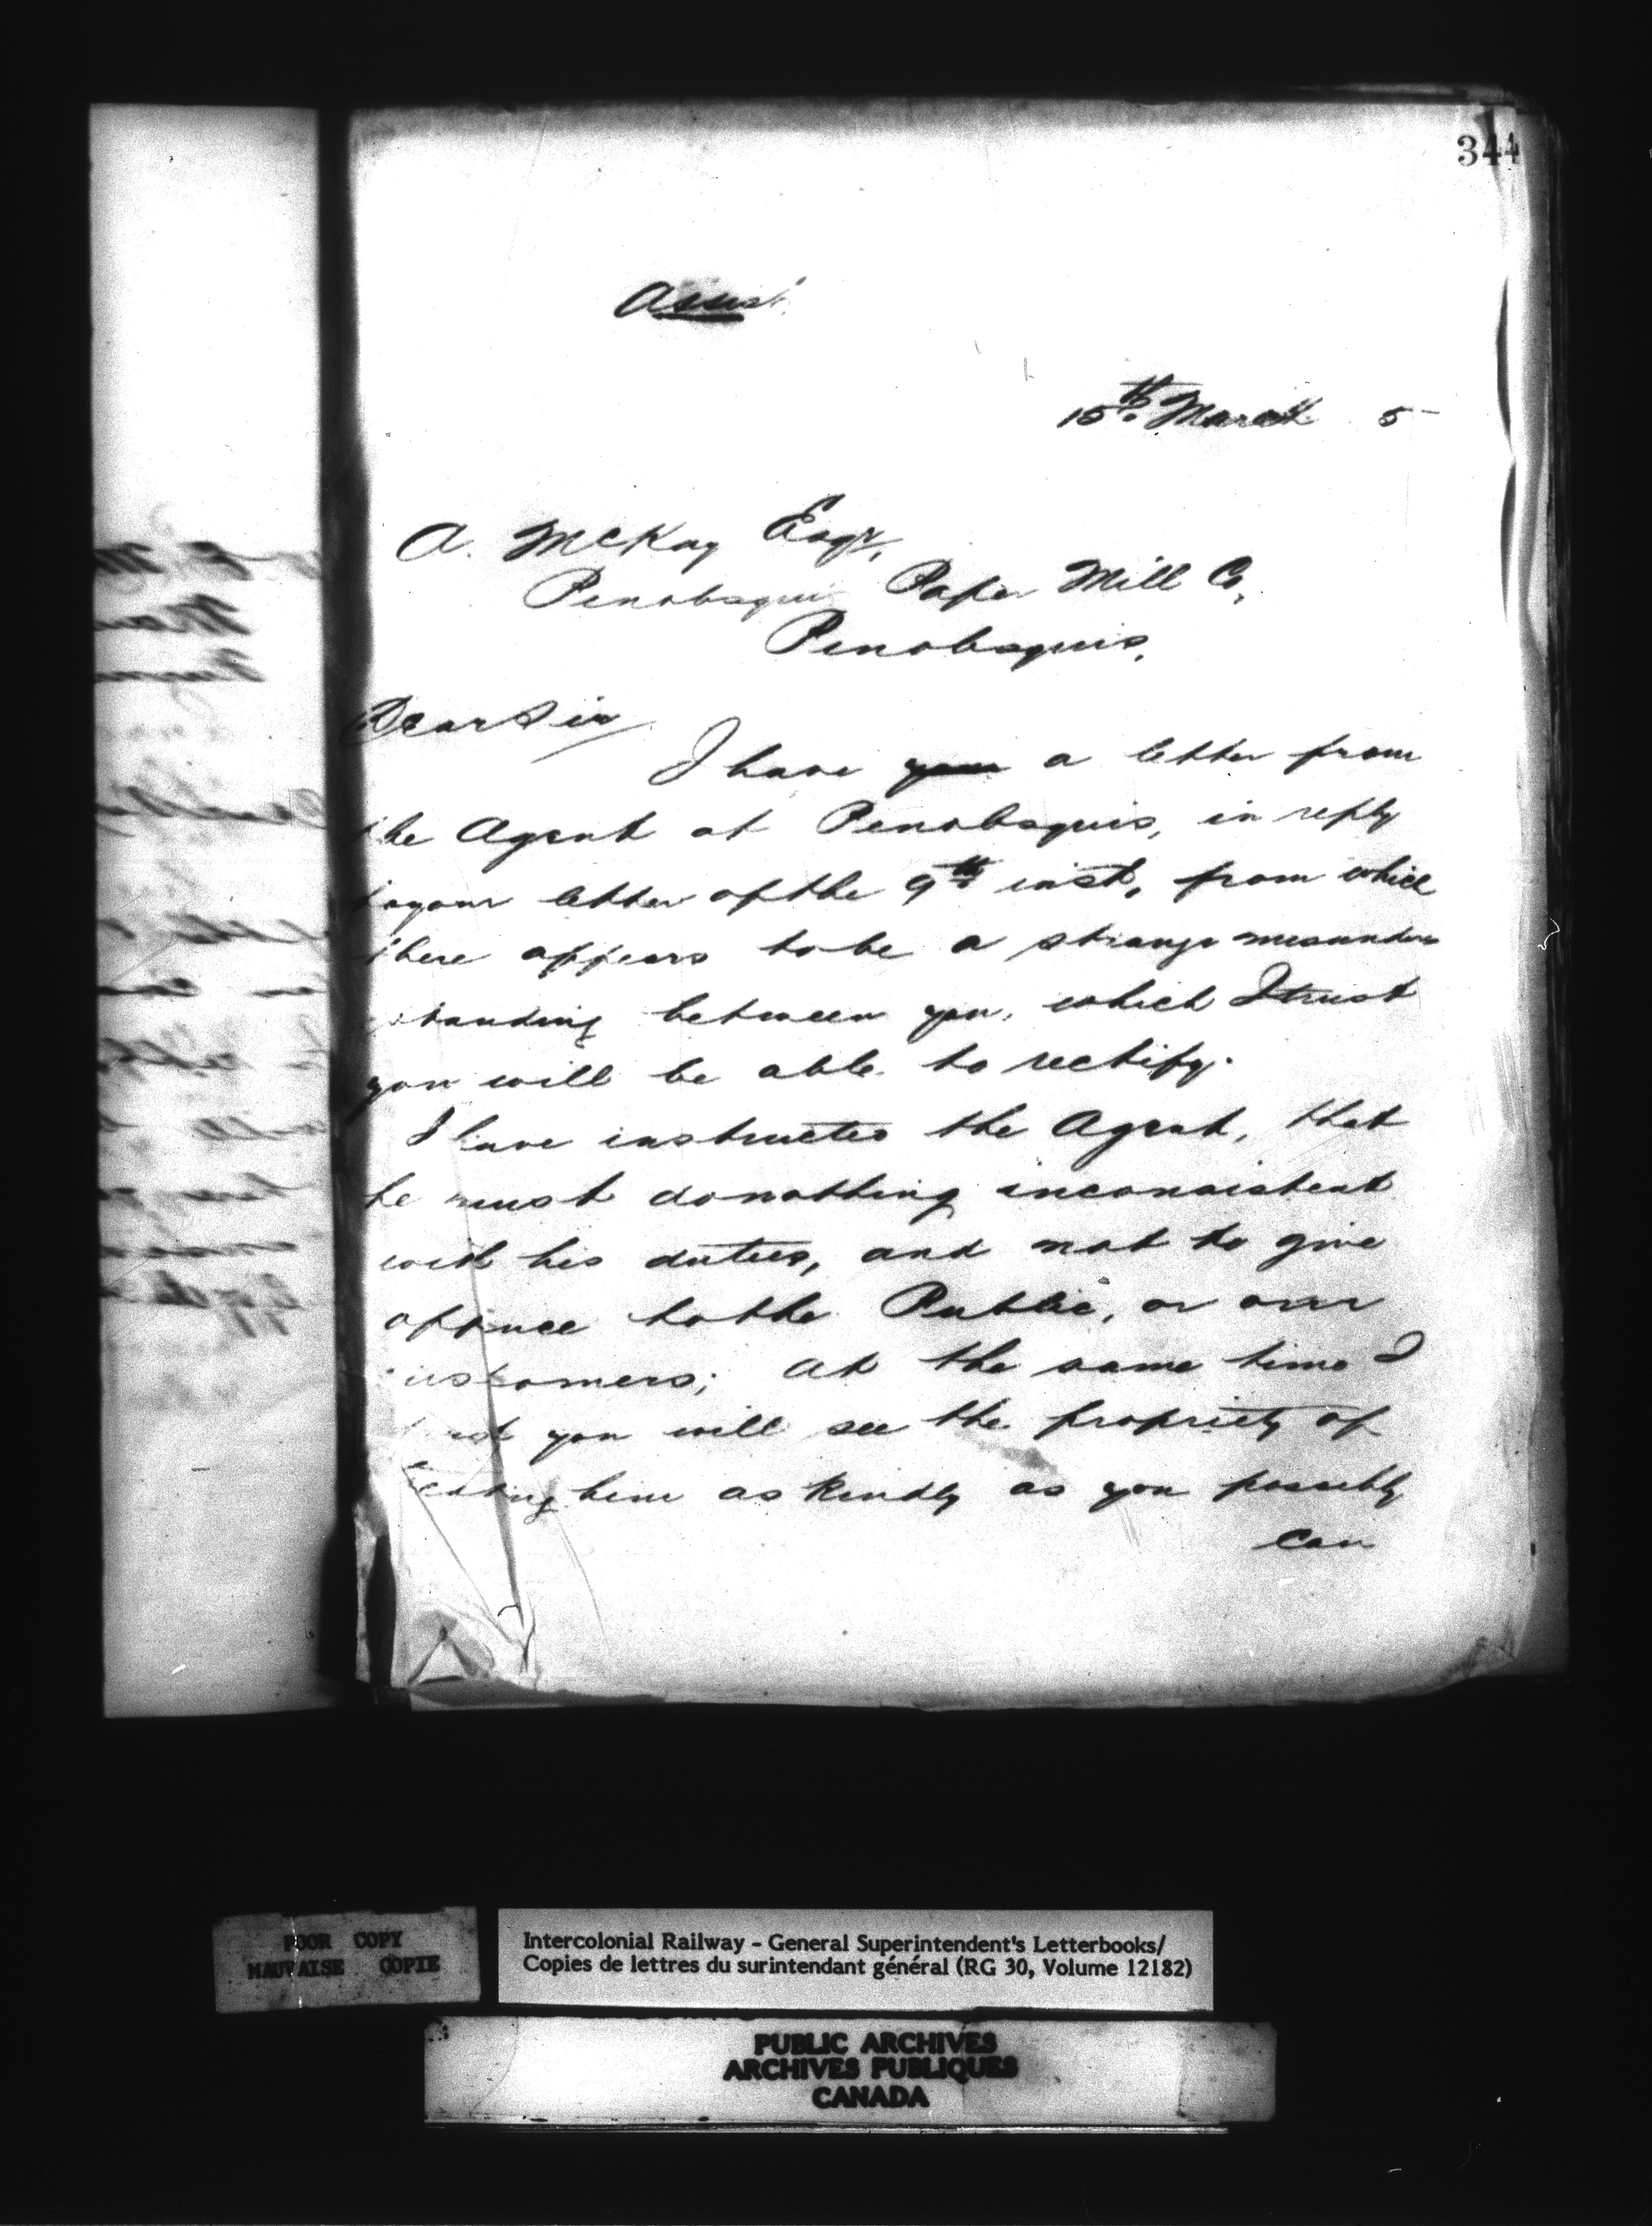 344
Assist
15th March 5
A. McKay Esqr,
Penobsquis Paper Mill Co,
Penobsquis.
Dear Sir
I have a letter from
the Agent at Penobsquis, in reply
to your letter of the 9th inst, from which
there appears to be a strange misunder
standing between you, which I trust
you will be able to rectify.
I have instructed the Agent, that
he must do nothing inconsistent
with his duties, and not to give
offence to the Public, or our
customers; At the same time I
trust you will see the propriety of
treating him as kindly as you possibly
can
POOR COPY
MAUVAISE COPIE
Intercolonial Railway - General Superintendent's Letterbooks/
Copies de lettres du surintendant général (RG 30, Volume 12182)
PUBLIC ARCHIVES
ARCHIVES PUBLIQUES
CANADA